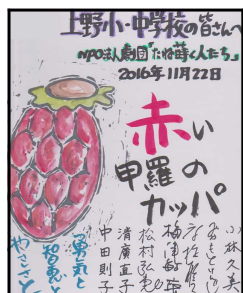 上野小・中学校の皆さんへ
NPO法人劇団「たね蒔く人たち」
2016年11月22日
赤い
甲羅の
カッパ
小林久美
松村弘恵
清廣直子
中田則子
「勇気と
智恵と
やさしさ